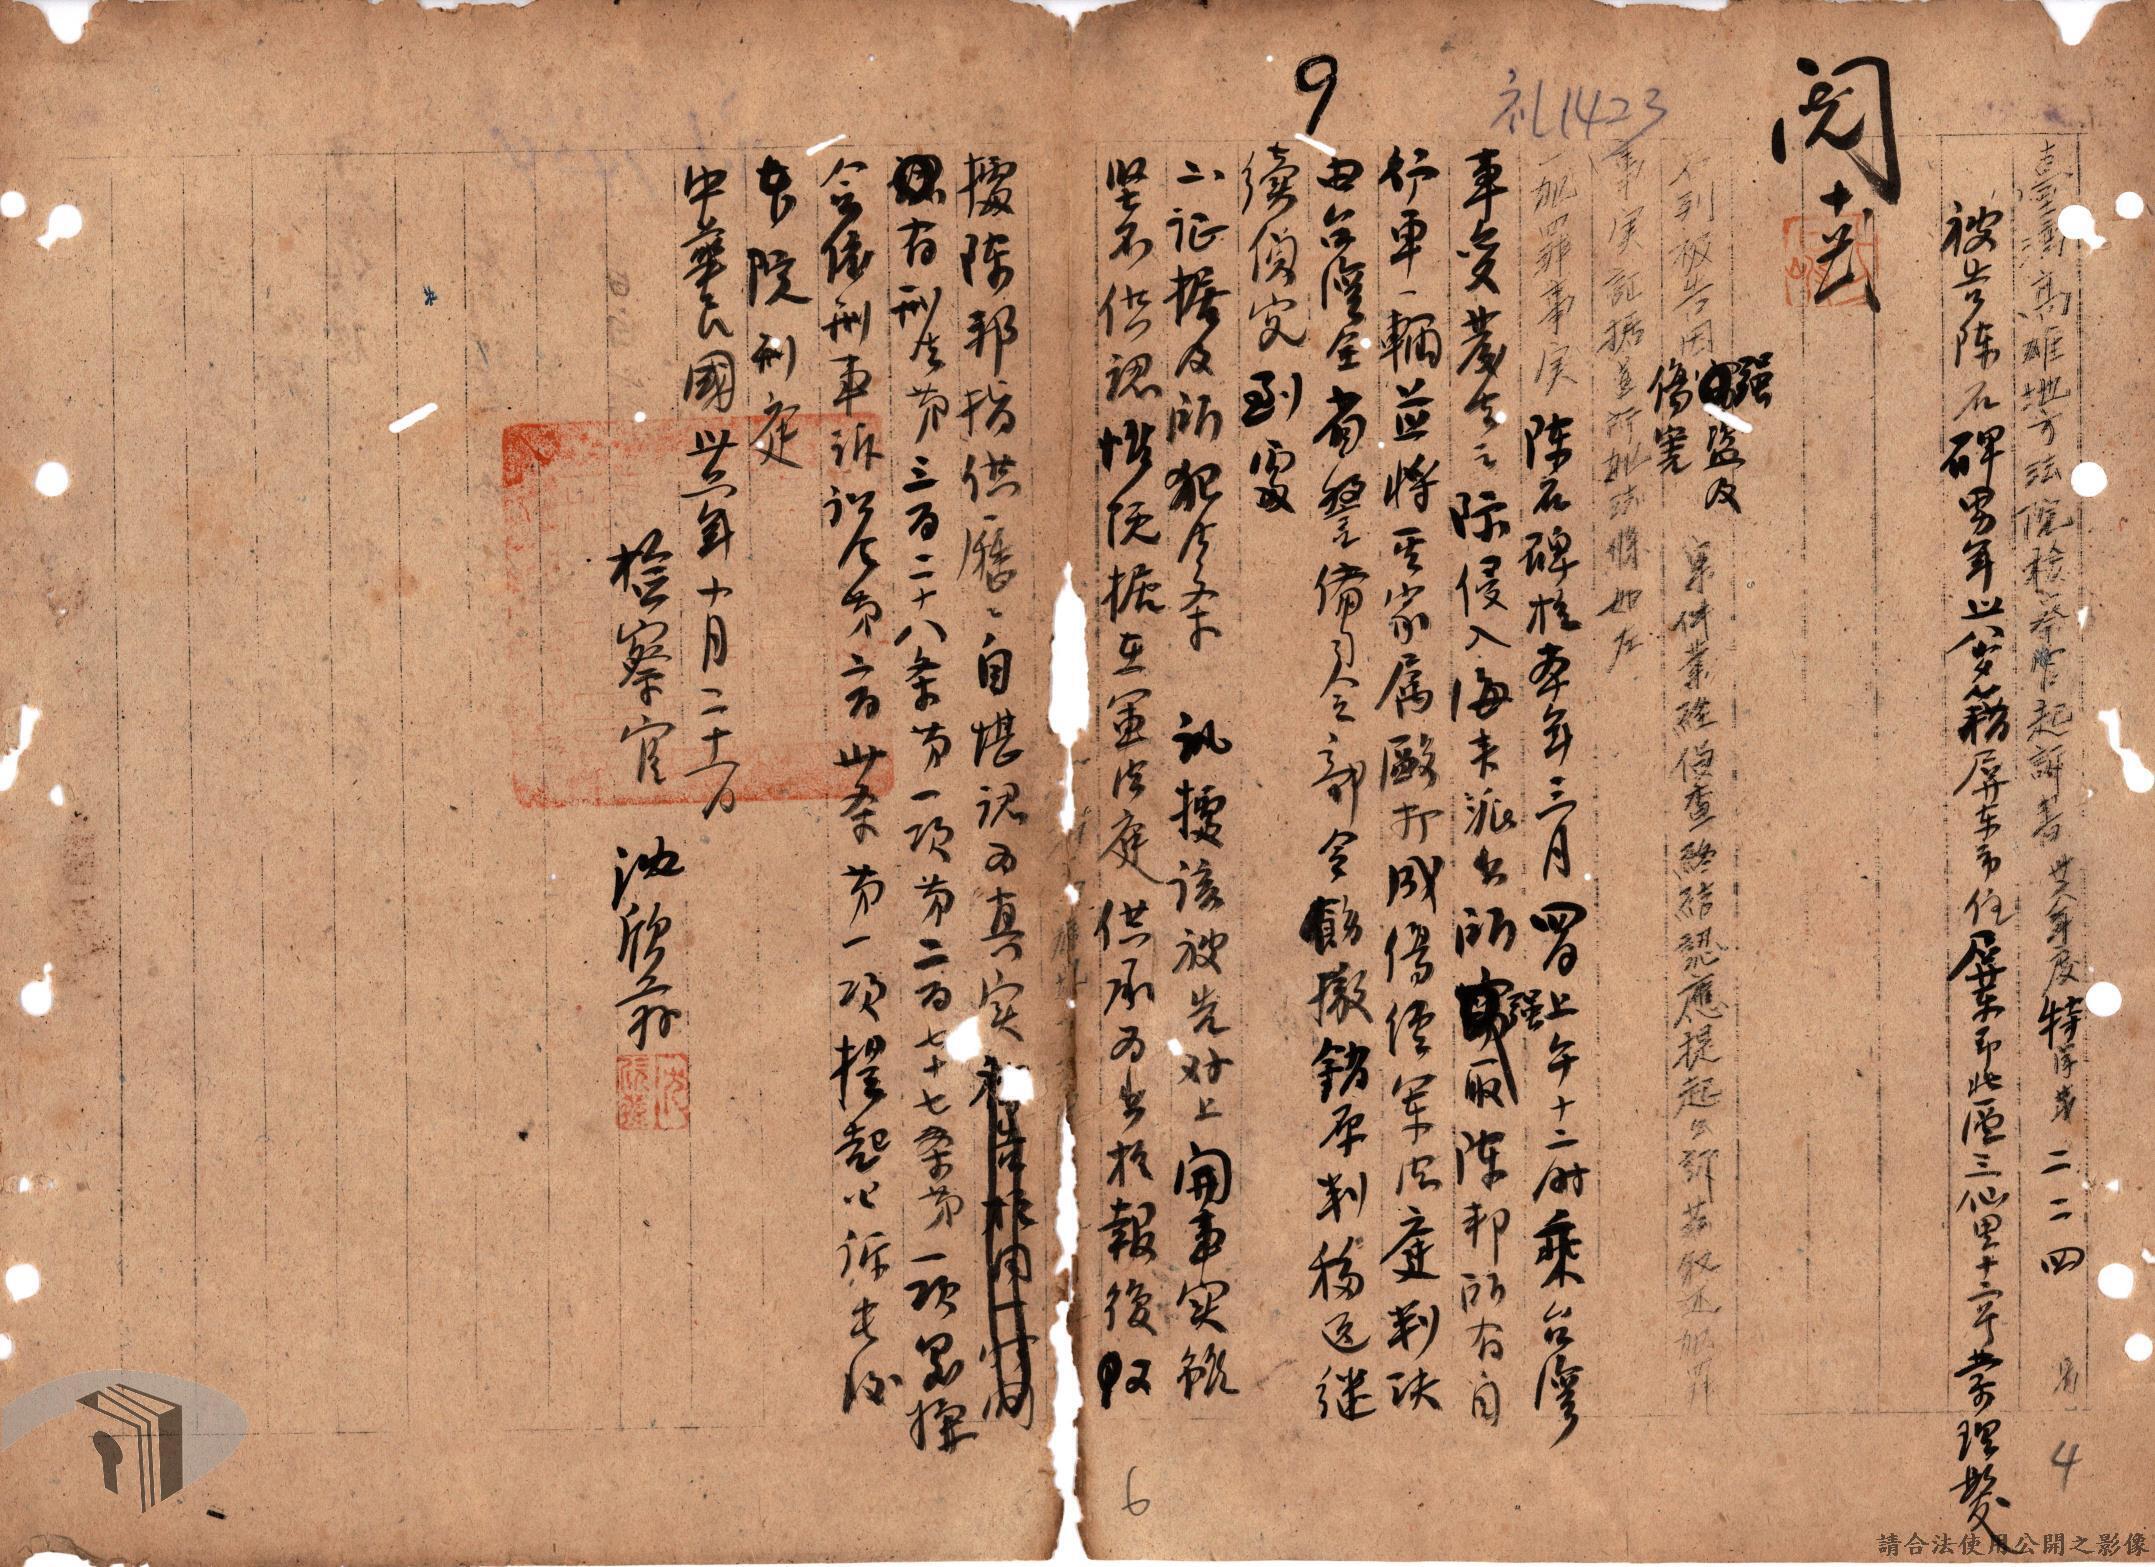 臺灣高雄地方法院檢察官起訴書 年度特字第二二四號
被告陳石碑男年 歲籍屏東市住屏東市北區三仙里十二 業理髮
閱
十 
右列被告因强盜及傷害案件業經偵查終結認應提起公訴茲敘述犯罪
事实証據並所犯法條如左
一犯罪事实 陳石碑於本年三月四日上午十二時乘台灣
事变 之际侵入海末派出所强取陳邦所有自
行車一輛並將其家属毆打成傷經軍法庭判決
由台灣全省警備司令部令飭撤銷原判移送继
續偵究到處
二证據及所犯法条 訊據該被告对上開事实雖
坚不供認惟既据在軍法庭供承 報復
據陳邦指供歷歷自堪認为真实
有刑法第三百二十八条第一項第二百七十七条第一項
合依刑事訴訟法第二百卅条第一項提起公訴
本院刑庭
中華民國卅 年十月二十 日
檢察官 沈
9
礼1423
4
6
請合法使用公開之影像